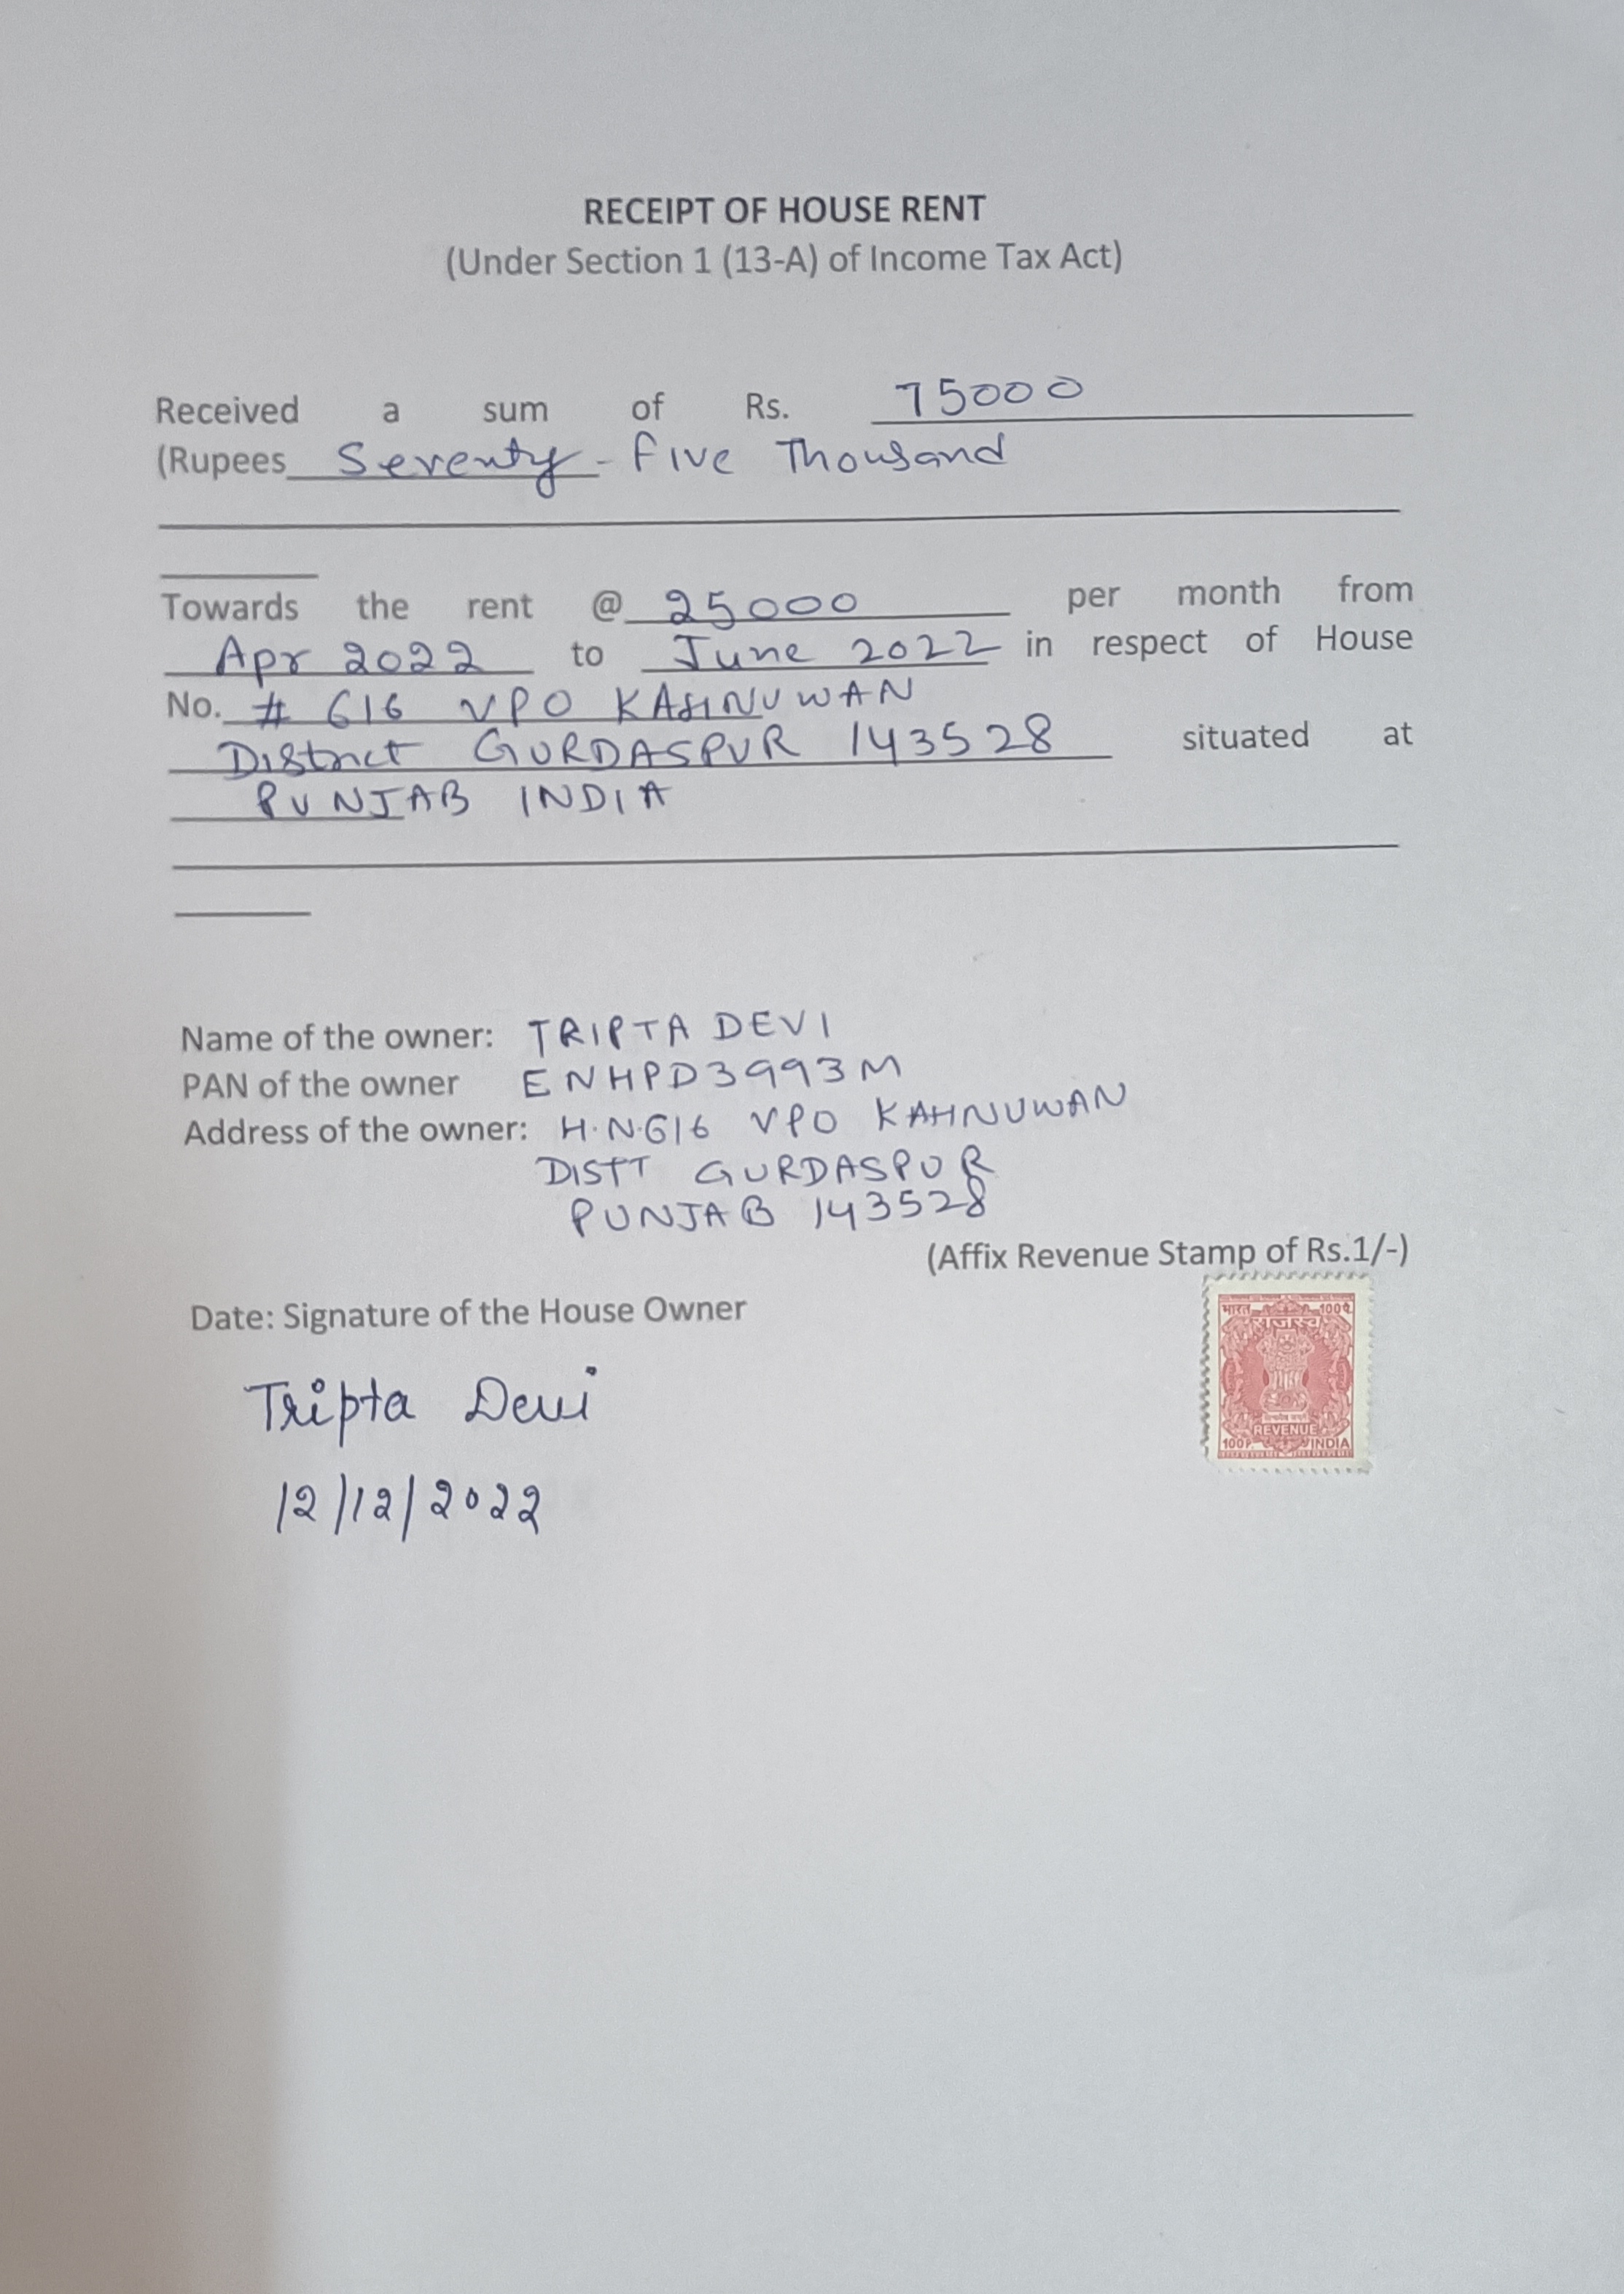 RECEIPT OF HOUSE RENT
(Under Section 1 (13-A) of Income Tax Act)
Received a sum of Rs. 75000
(Rupees Seventy-five Thousand
Towards the rent @ 25000 per month from
Apr 2022 to June 2022 in respect of House
No. # 616 VPO KAHNUWAN
District GURDASPUR 143528 situated at
PUNJAB INDIA
Name of the owner: TRIPTA DEVI
PAN of the owner ENHPD3993M
Address of the owner: H.N.616 VPO KAHNUWAN
DISTT GURDASPUR
PUNJAB 143528
(Affix Revenue Stamp of Rs.1/-)
Date: Signature of the House Owner
भारत 100पै.
राजस्व
REVENUE
100P INDIA
Tripta Devi
12/12/2022